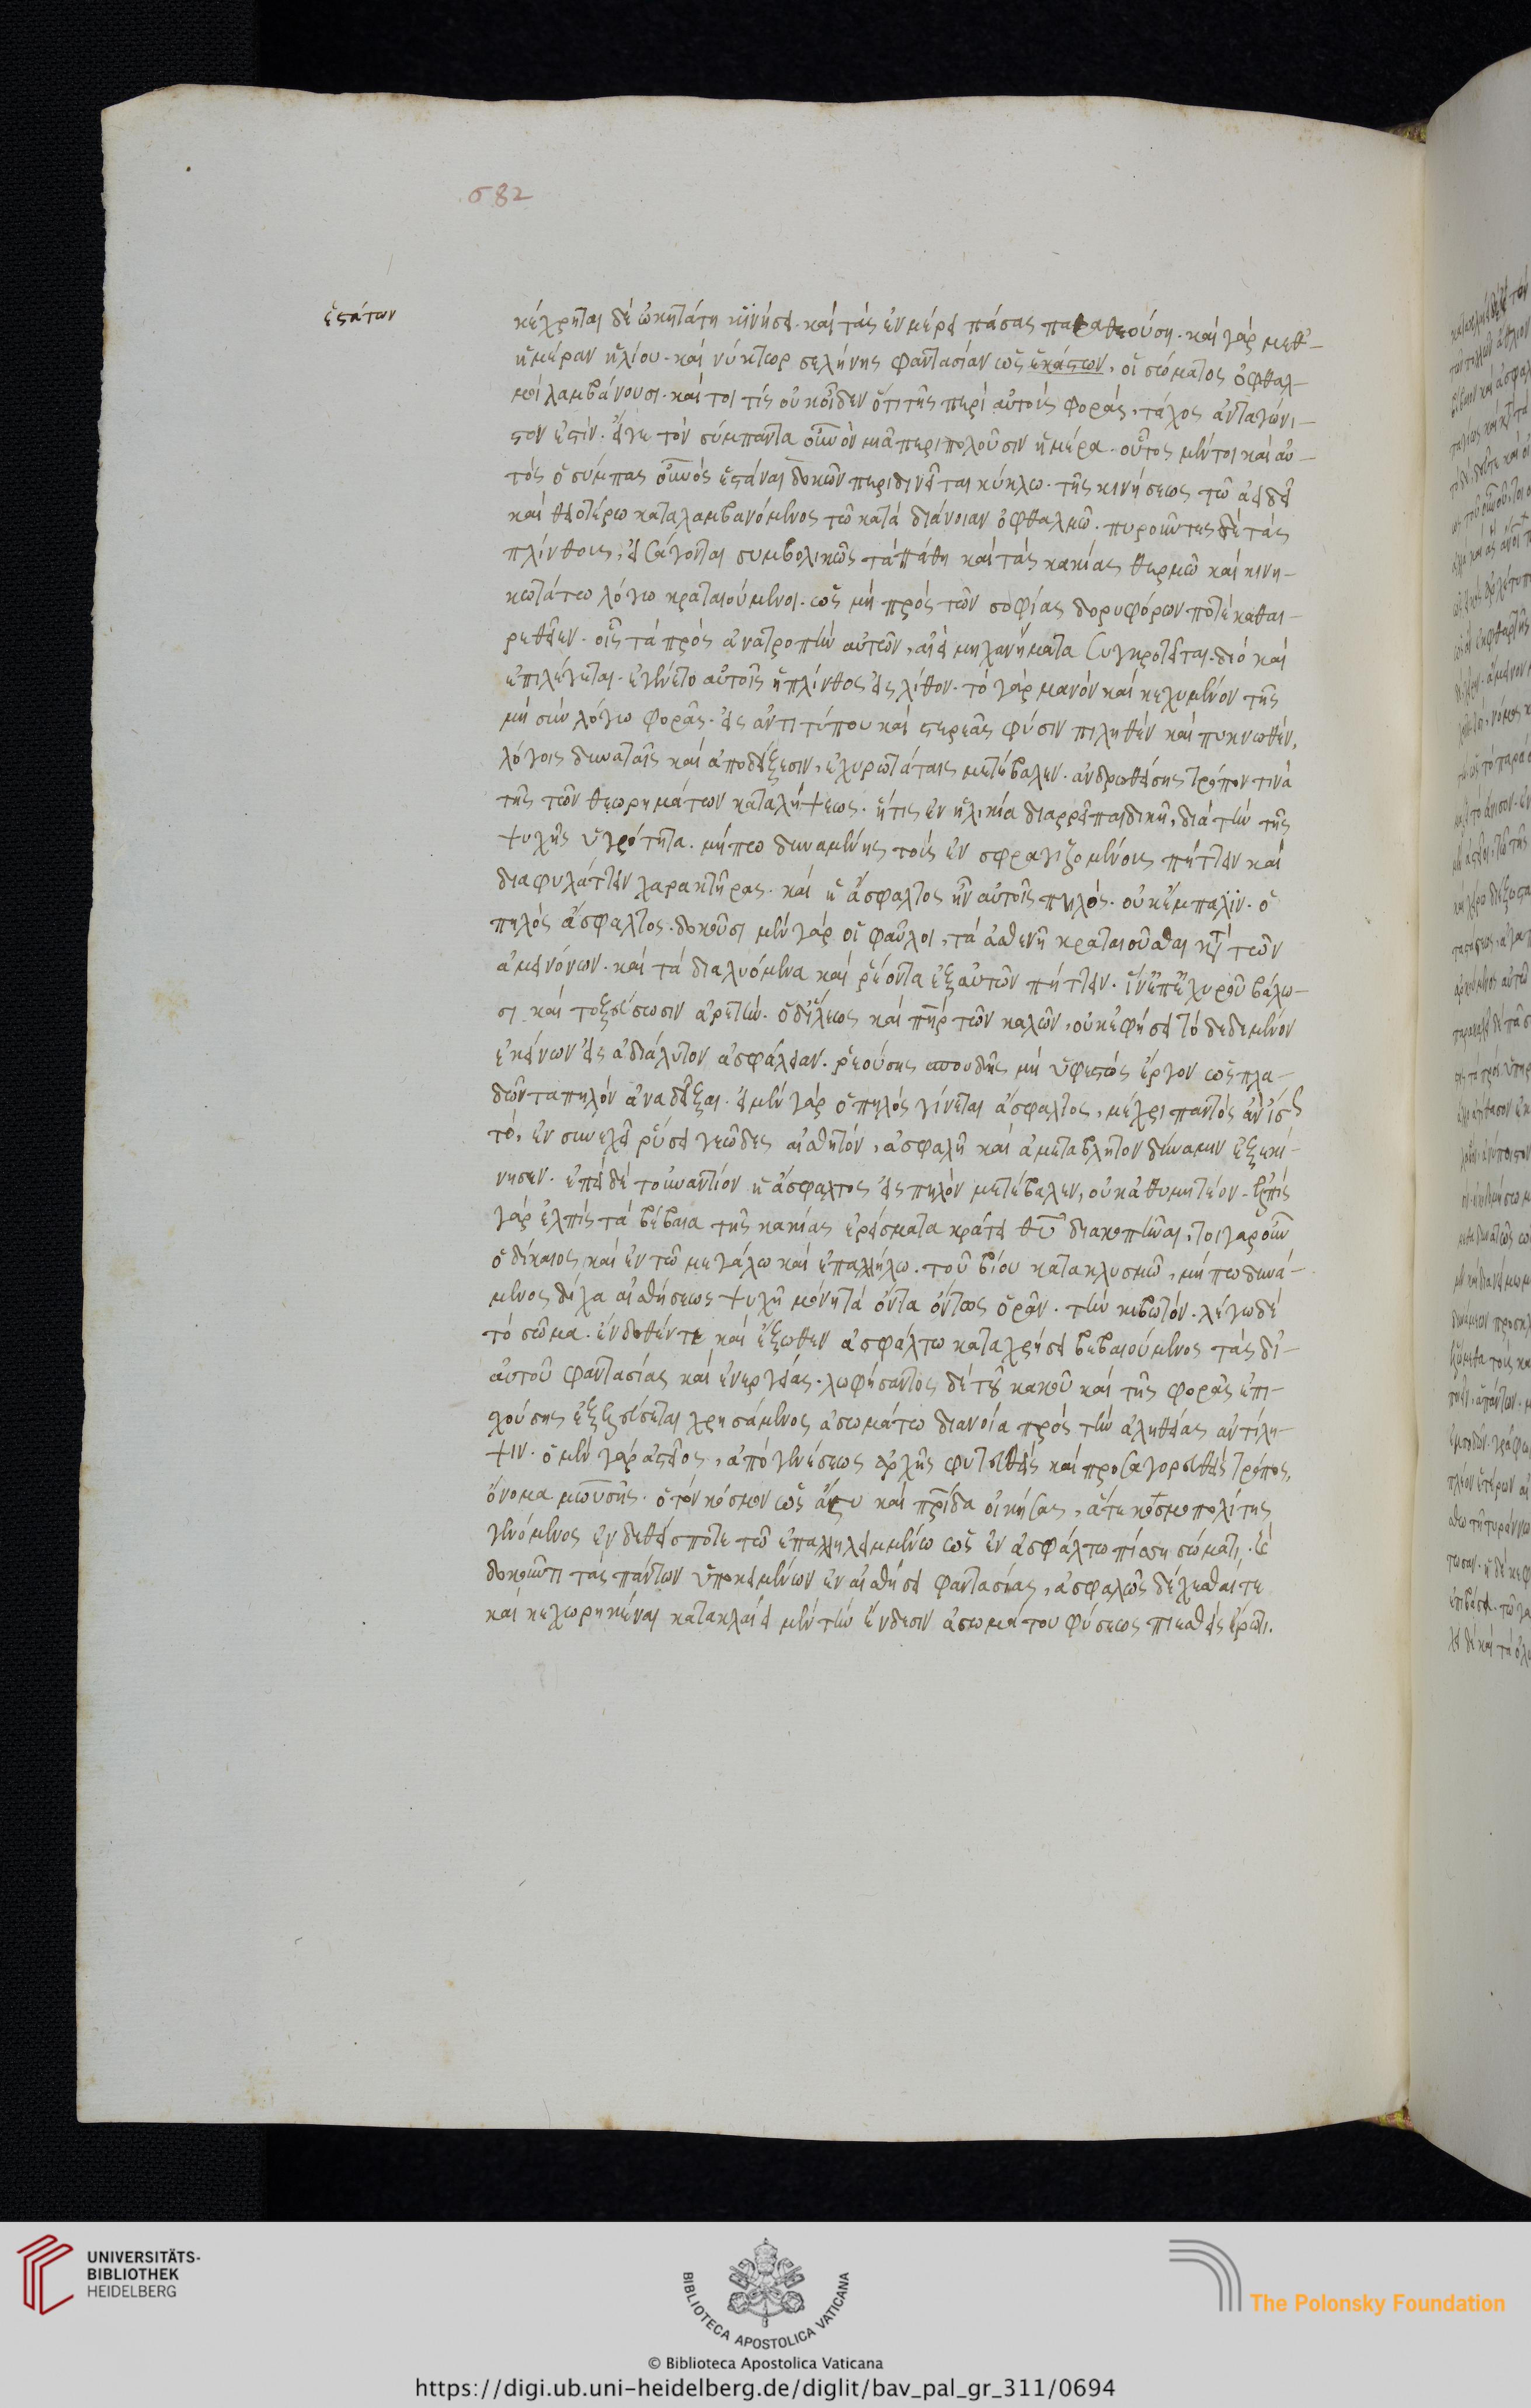 682
ἑστάτων
κέχρηται δὲ ὠκυτάτη κινήσει. καὶ τὰς ἐν μέρει πάσας παραθεούση. καὶ γὰρ μεθ’
ἡμέραν ἡλίου. καὶ νύκτωρ σελήνης φαντασίαν ὡς ἑκάστων, οἱ σώματος ὀφθαλ-
μοὶ λαμβάνουσι. καί τοι τίς οὐκ οἶδεν ὅτι τῆς περὶ αὐτοὺς φορᾶς, τάχος ἀνταγώνι-
στον ἐστίν. εἴγε τὸν σύμπαντα οὐνὸν μιᾶ περιπολοῦσιν ἡμέρα. οὗτος μέντοι καὶ αὐ-
τὸς ὁ σύμπας οὐνὸς ἑστάναι δοκῶν περιδινεῖται κύκλω. τῆς κινήσεως τῶ ἀειδεῖ
καὶ θειοτέρω καταλαμβανόμενος τῶ κατὰ διάνοιαν ὀφθαλμῶ. πυροῦντες δὲ τὰς
πλίνθους, εἰσάγονται συμβολικῶς τὰ πάθη καὶ τὰς κακίας θερμῶ καὶ κινη-
κωτάτω λόγω κραταιούμενοι. ὡς μὴ πρὸς τῶν σοφίας δορυφόρων ποτὲ καθαι-
ρεθεῖεν. οἷς τὰ πρὸς ἀνατροπὴν αὐτῶν, αἰεὶ μηχανήματα συγκροτεῖται. διὸ καὶ
ἐπιλέγεται. ἐγένετο αὐτοῖς ἡ πλίνθος εἰς λίθον. τὸ γὰρ μανὸν καὶ κεχυμένον τῆς
μὴ σὺν λόγω φορᾶς. εἰς ἀντιτύπου καὶ στερεᾶς φύσιν πιληθὲν καὶ πυκνωθὲν,
λόγοις δυνατοῖς καὶ ἀποδείξεσιν, ἐχυρωτάταις μετέβαλεν. ἀνδρωθείσης τρόπον τινὰ
τῆς τῶν θεωρημάτων καταλήψεως. ἥτις ἐν ἡλικία διαρρεῖ παιδικῆ, διὰ τὴν τῆς
ψυχῆς ὑγρότητα. μήπω δυναμένης τοὺς ἐν σφραγιζομένους πήττειν καὶ
διαφυλάττειν χαρακτῆρας. καὶ ἡ ἄσφαλτος ἦν αὐτοῖς πηλός. οὐκ ἔμπαλιν. ὁ
πηλὸς ἄσφαλτος. δοκοῦσι μὲν γὰρ οἱ φαῦλοι, τὰ ἀσθενῆ κραταιοῦσθαι κατὰ τῶν
ἀμεινόνων. καὶ τὰ διαλυόμενα καὶ ῥέοντα ἐξ αὐτῶν πήττειν. ἵν’ ἐπ’ ἐχυροῦ βάλω-
σι καὶ τοξεύσωσιν ἀρετήν. ὁ δ’ ἵλεως καὶ πὴρ τῶν καλῶν, οὐκ ἐφήσει τὸ δεδεμένον
ἐκείνων εἰς ἀδιάλυτον ἀσφάλειαν. ῥεούσης σπουδῆς μὴ ὑφεστὼς ἔργον ὡς πλα-
δῶντα πηλὸν ἀναδεῖξαι. εἰ μὲν γὰρ ὁ πηλὸς γίνεται ἄσφαλτος, μέχρι παντὸς ἂν ἴσως
τό, ἐν συνεχεῖ ῥύσει γεῶδες αἰσθητόν, ἀσφαλῆ καὶ ἀμετάβλητον δύναμιν ἐξενί-
κησεν. ἐπεὶ δὲ τοὐναντίον ἡ ἄσφαλτος εἰς πηλὸν μετέβαλεν, οὐκ ἀθυμητέον. ἐλπὶς
γὰρ ἐλπὶς τὰ βέβαια τῆς κακίας ἐρείσματα κράτει θῦ διακοπῆναι, τοιγαροῦν
ὁ δίκαιος καὶ ἐν τῶ μεγάλω καὶ ἐπαλλήλω. τοῦ βίου κατακλυσμῶ, μήπω δυνά-
μενος δίχα αἰσθήσεως ψυχῆ μόνη τὰ ὄντα ὄντως ὁρᾶν. τὴν κιβωτόν. λέγω δὲ
τὸ σῶμα. ἔνδοθέν τε καὶ ἔξωθεν ἀσφάλτω καταχρήσει βεβαιούμενος τὰς δι’
αὐτοῦ φαντασίας καὶ ἐνεργείας. λωφήσαντος δὲ τοῦ κακοῦ καὶ τῆς φορᾶς ἐπι-
χούσης ἐξελεύσεται χρησάμενος ἀσωμάτω διανοία πρὸς τὴν ἀληθείας ἀντίλη-
ψιν. ὁ μὲν γὰρ ἀστεῖος, ἀπὸ γενέσεως ἀρχῆς φυτευθεὶς καὶ προσαγορευθεὶς τρόπος,
ὄνομα μωυσῆς. ὁ τὸν κόσμον ὡς ἄστυ καὶ πρίδα οἰκήσας, ἅτε κοσμοπολίτης
γενόμενος ἐνδεθείς ποτε τῶ ἐπαληλειμμένω ὡς ἐν ἀσφάλτω πίσση σώματι,
δοκοῦντι τὰς πάντων ὑποκειμένων ἐν αἰσθήσει φαντασίας, ἀσφαλῶς δέχεσθαί τε
καὶ κεχωρηκέναι κατακλαίει μὲν τὴν ἔνδεσιν ἀσωμάτου φύσεως πιεσθεὶς ἔρωτι.
UNIVERSITÄTS-
BIBLIOTHEK
HEIDELBERG
BIBLIOTECA APOSTOLICA VATICANA
The Polonsky Foundation
© Biblioteca Apostolica Vaticana
https://digi.ub.uni-heidelberg.de/diglit/bav_pal_gr_311/0694